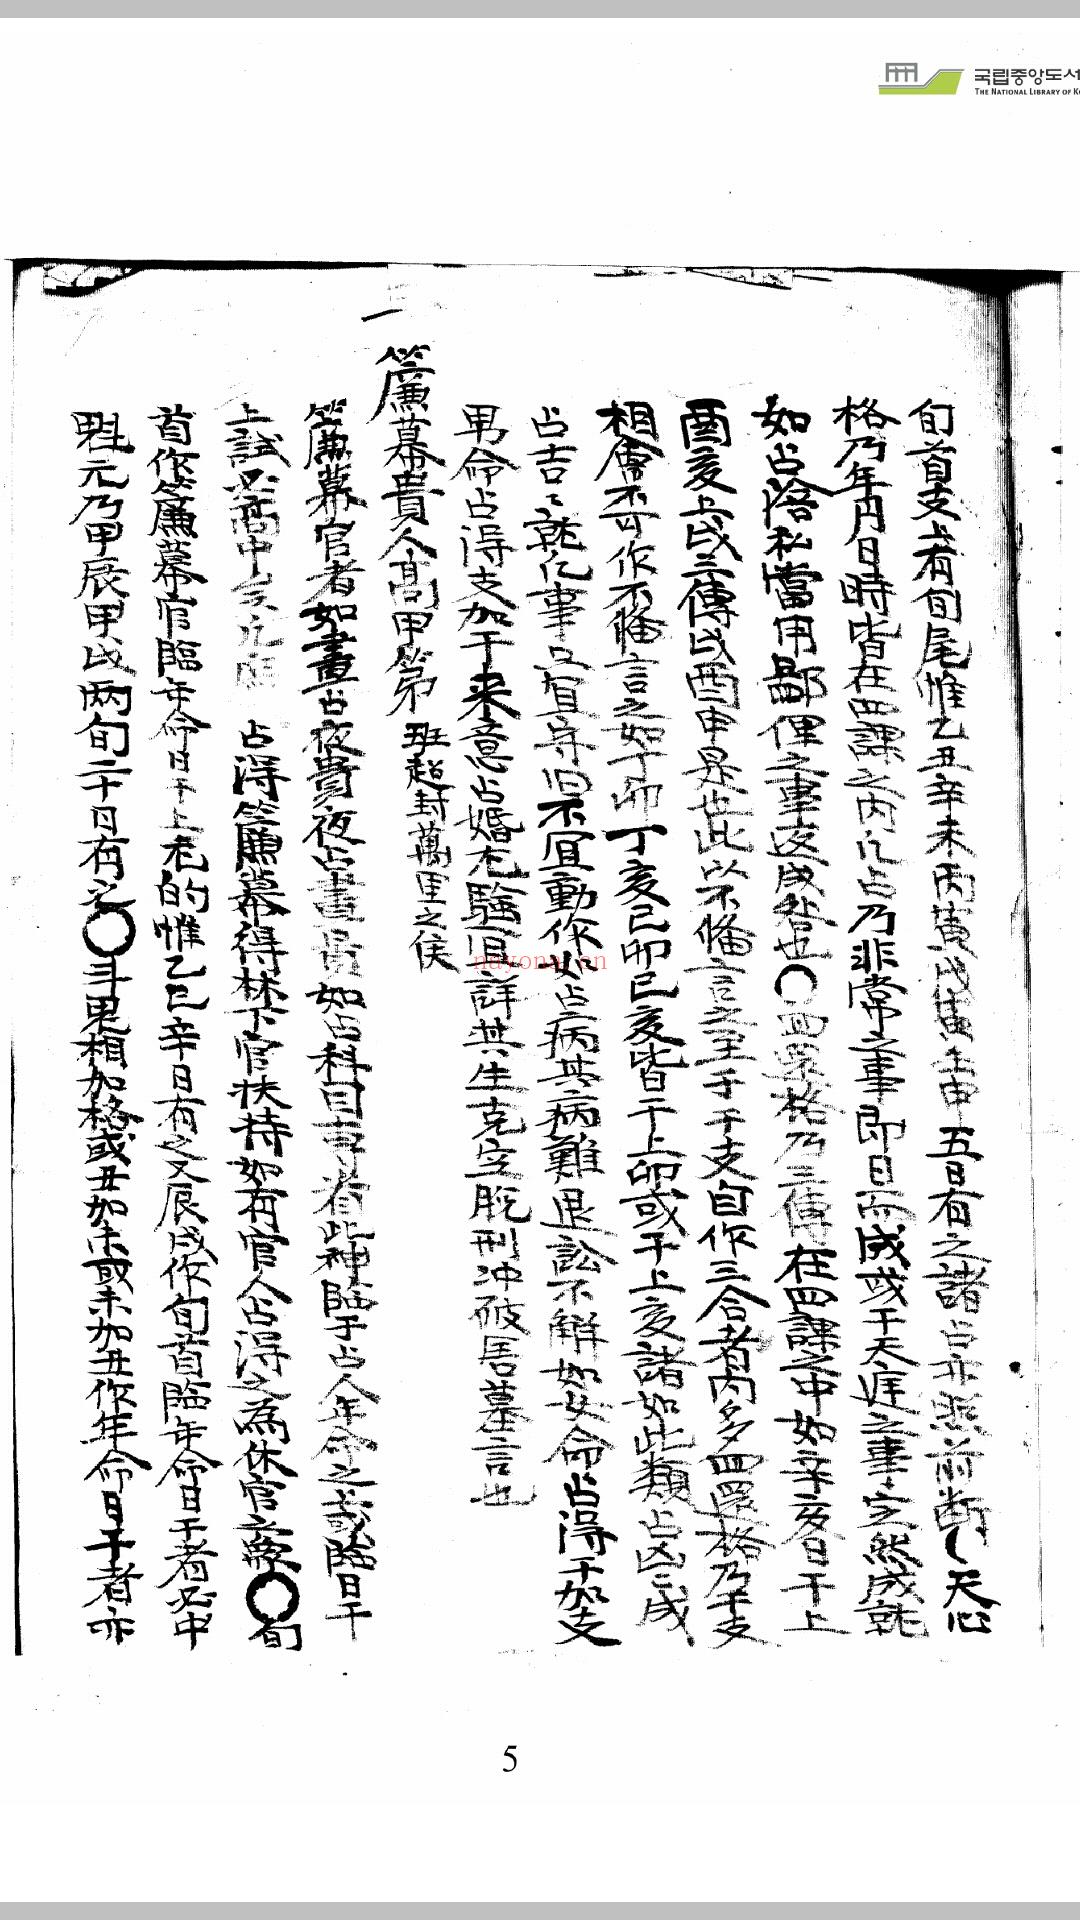 국립중앙도서
THE NATIONAL LIBRARY OF K
旬首支上有旬尾惟乙丑辛未丙寅戊寅壬申五日有之諸占亦照前断 天心
格乃年月日時皆在四課之内凡占乃非常之事即日而成或干天庭之事定然成就
如占陰私當用鄙俚之事返成咎也〇四課格乃三傳在四課之中如辛亥日干上
酉亥上戌三傳戌酉申是也此以不俻言之至于干支自作三合者内多回還格乃干支
相會不可作不俻言之如丁卯丁亥己卯己亥皆干上卯或干上亥諸如此類占凶凶成
占吉吉就凡事只宜守旧不宜動作以占病其病難退訟不解如女命占得干加支
男命占得支加干来意占婚尤驗宜詳其生克空脫刑冲破害墓言也
二
簾幕貴人高甲第 班超封萬里之侯
簾幕官者如晝占夜貴夜占晝貴如占科目専看此神臨于占人年命之或臨日干
上試必高中 占得簾幕得林下官扶持如有官人占得之為休官之 〇旬
首作簾幕官臨年命日干上老的惟乙己辛日有之又辰戌作旬首臨年命日干者必中
魁元乃甲辰甲戌两旬二十日有之〇斗鬼相加格或丑加未或未加丑作年命日干者亦
nayona.cn
5